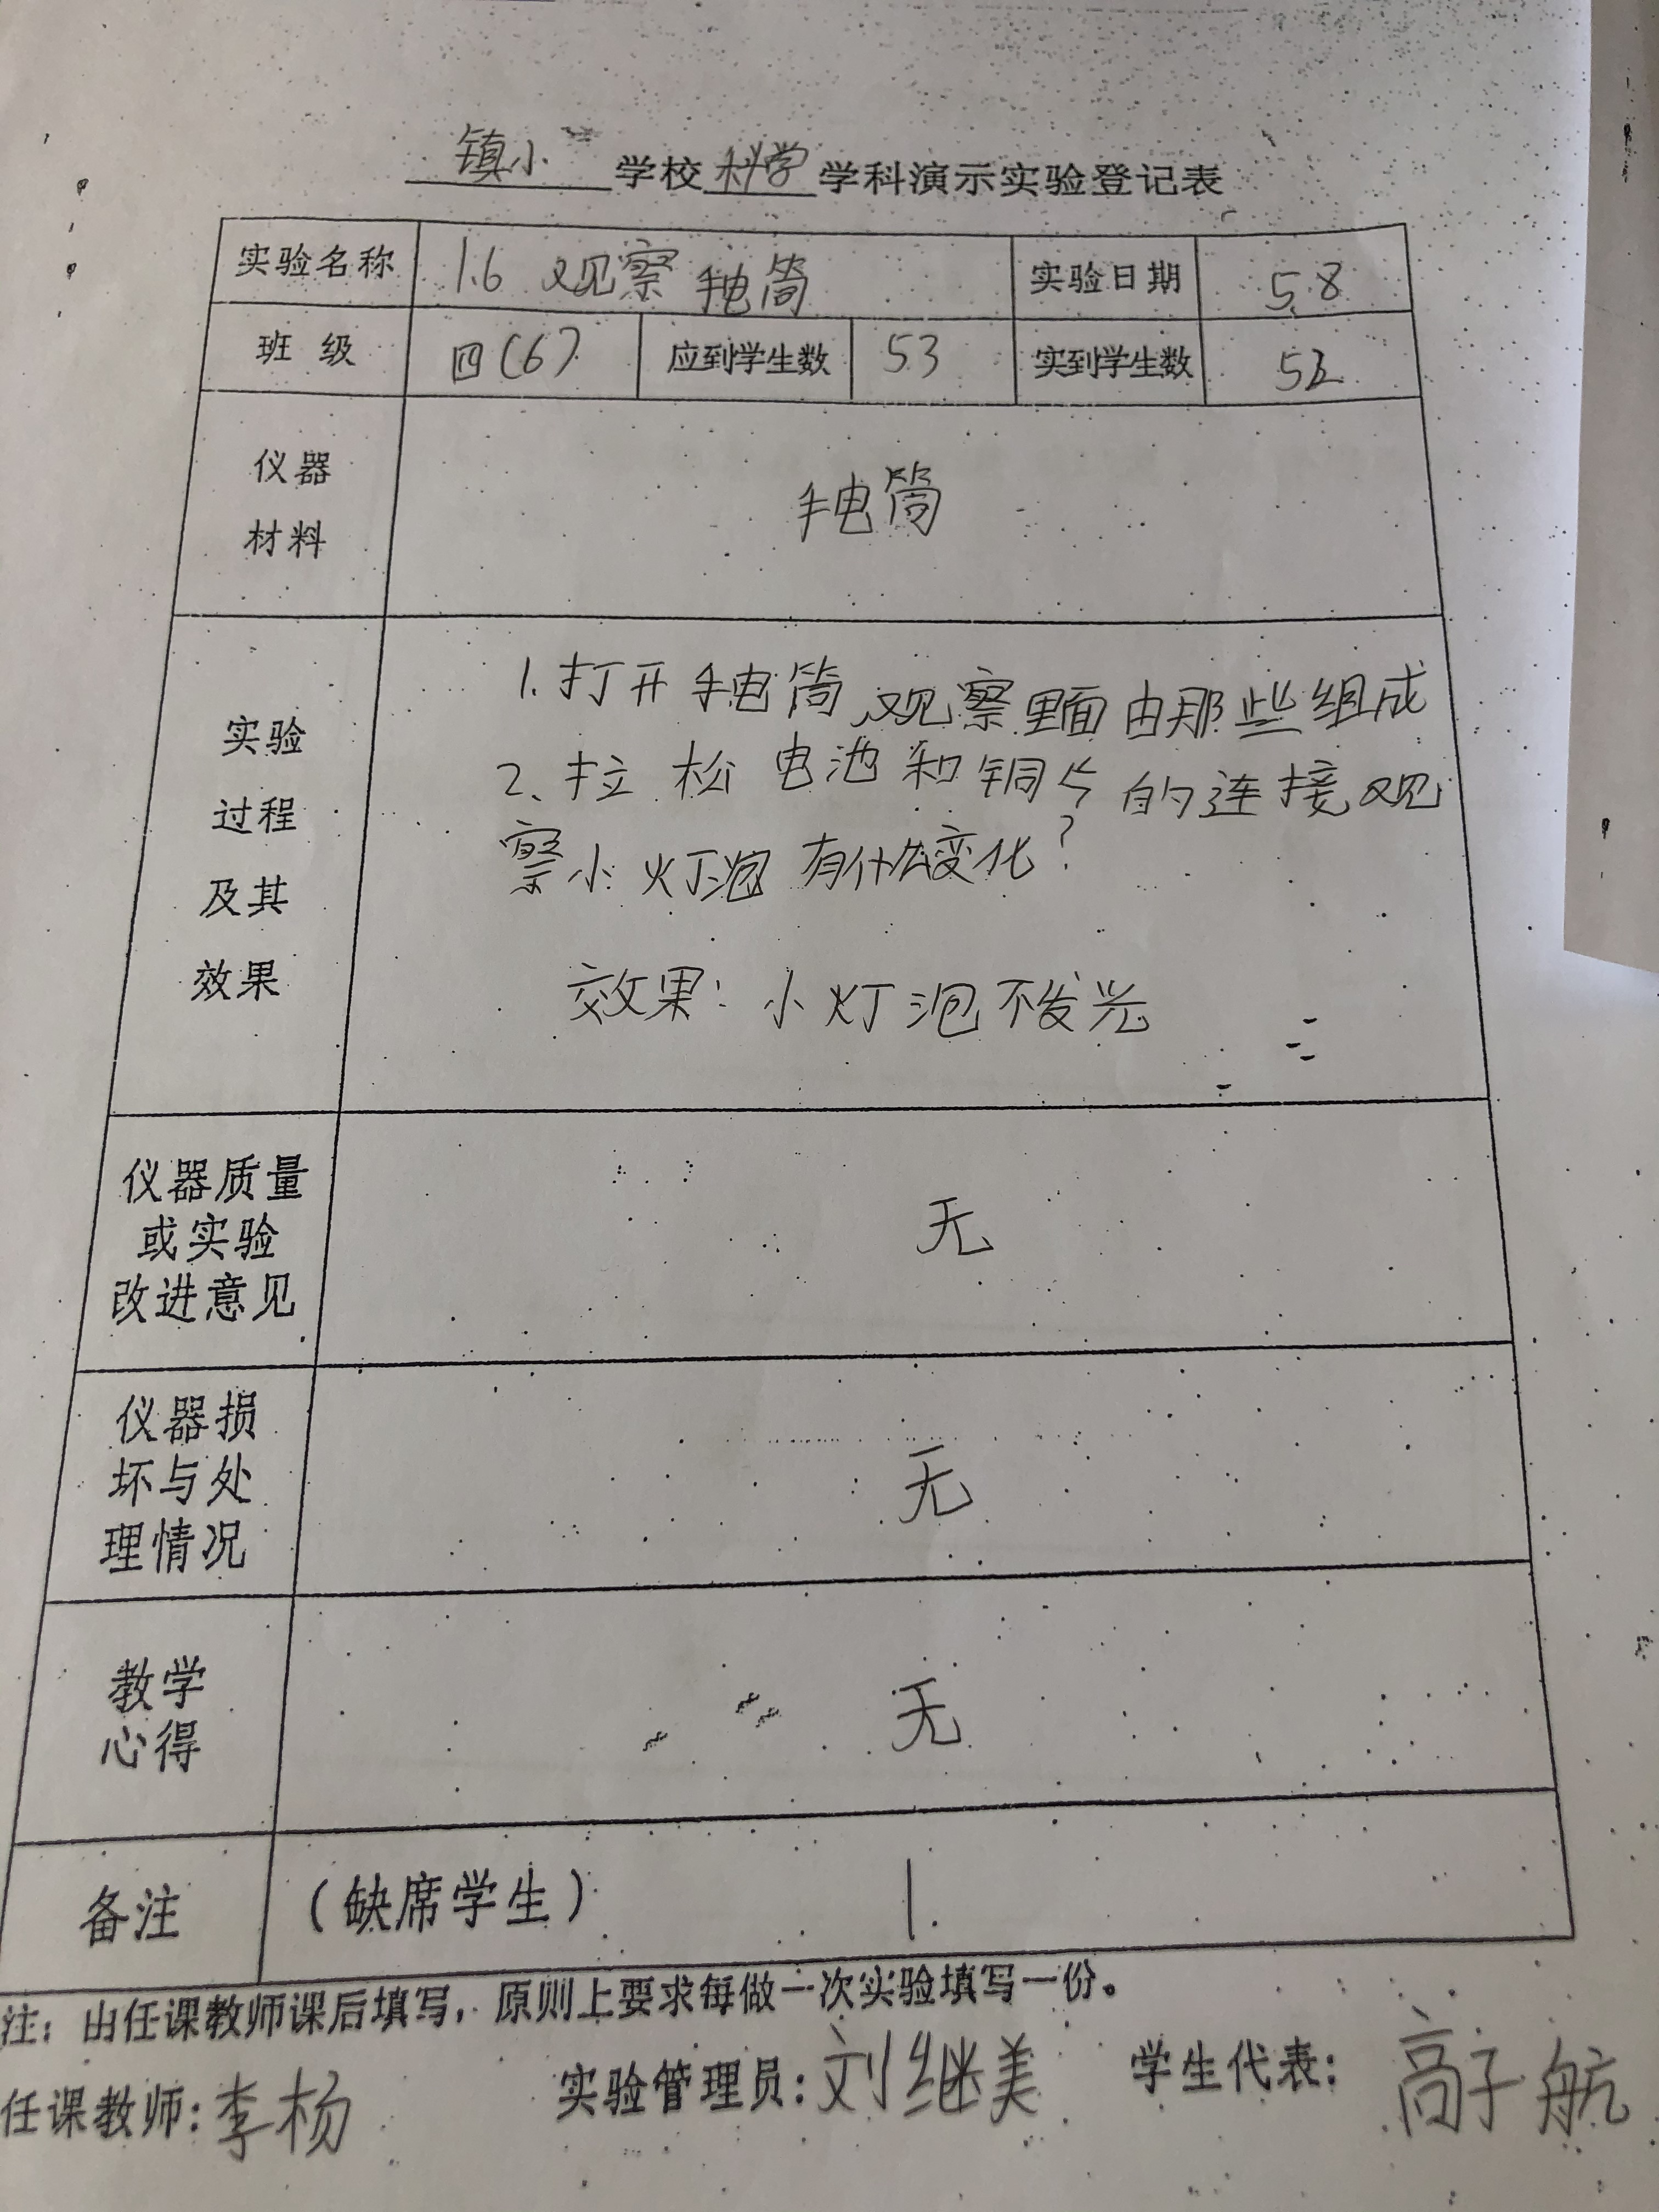 镇小学校科学学科演示实验登记表
实验名称 1.6 观察手电筒 实验日期 5.8
班级 四(6) 应到学生数 53 实到学生数 52
仪器
材料
手电筒
实验
过程
及其
效果
1.打开手电筒,观察里面由那些组成
2、拉松电池和铜片的连接观
察小灯泡有什么变化?
效果:小灯泡不发光
仪器质量
或实验
改进意见
无
仪器损
坏与处
理情况
无
教学
心得
无
备注 (缺席学生) 1.
注:由任课教师课后填写,原则上要求每做一次实验填写一份。
任课教师:李杨 实验管理员:刘继美 学生代表:高子航